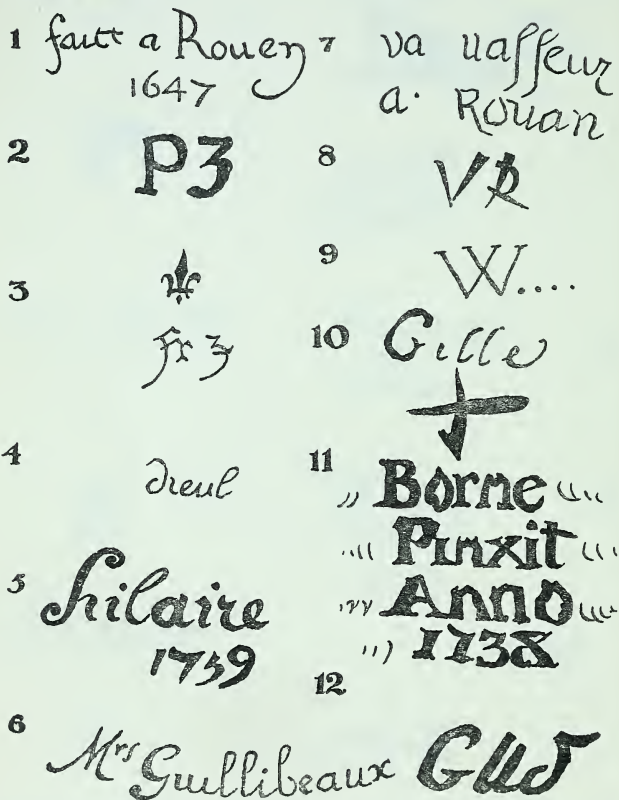 1 faitt a Rouen
1647
2 P3
3
fr 3
4 dieul
5 hilaire
1759
6 Mrs Guillibeaux
7 va uasseur
a. Rouan
8 VP
9 W....
10 Gille
11 Borne
Pinxit
Anno
1738
12 GUS